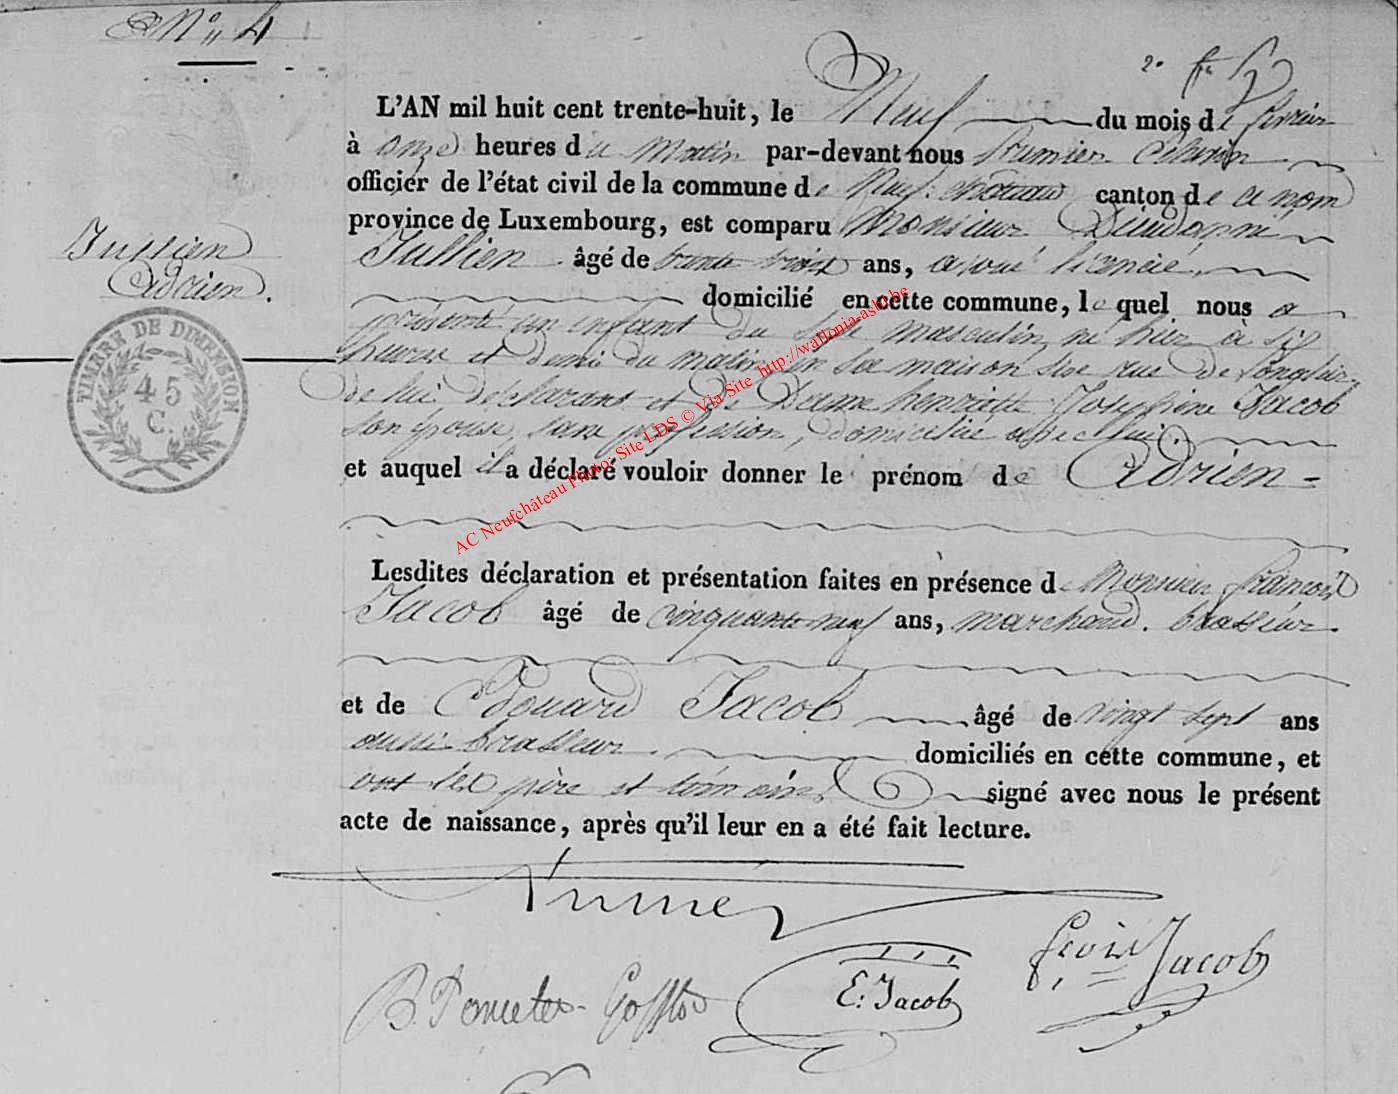 N° 4
L'AN mil huit cent trente-huit, le Neuf du mois de février
à onze heures du matin par-devant nous
officier de l'état civil de la commune de Neuf-château canton de ce nom
province de Luxembourg, est comparu Monsieur Dieudonné
Jullien âgé de trente trois ans, avoué licencié,
Jullien
Adrien.
domicilié en cette commune, le quel nous a
présenté un enfant du sexe masculin, né hier à six
heures et demi du matin en sa maison sise rue de
de lui déclarant et de Dame henriette Josephine Jacob
son épouse, sans profession, domiciliée avec lui.
et auquel il a déclaré vouloir donner le prénom de Adrien
TIMBRE DE DIMENSION
45
C.
AC Neufchâteau Photo: Site LDS © Via Site http://wallonia-asbl.be
Lesdites déclaration et présentation faites en présence de Monsieur françois
Jacob âgé de cinquante neuf ans, marchand brasseur
et de Edouard Jacob âgé de vingt sept ans
aussi brasseur. domiciliés en cette commune, et
ont les père et témoins signé avec nous le présent
acte de naissance, après qu'il leur en a été fait lecture.
E: Jacob
Jacob